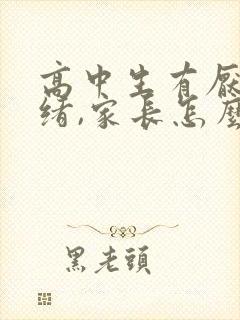 高中生有厭
緒,家長怎麼
黑老頭